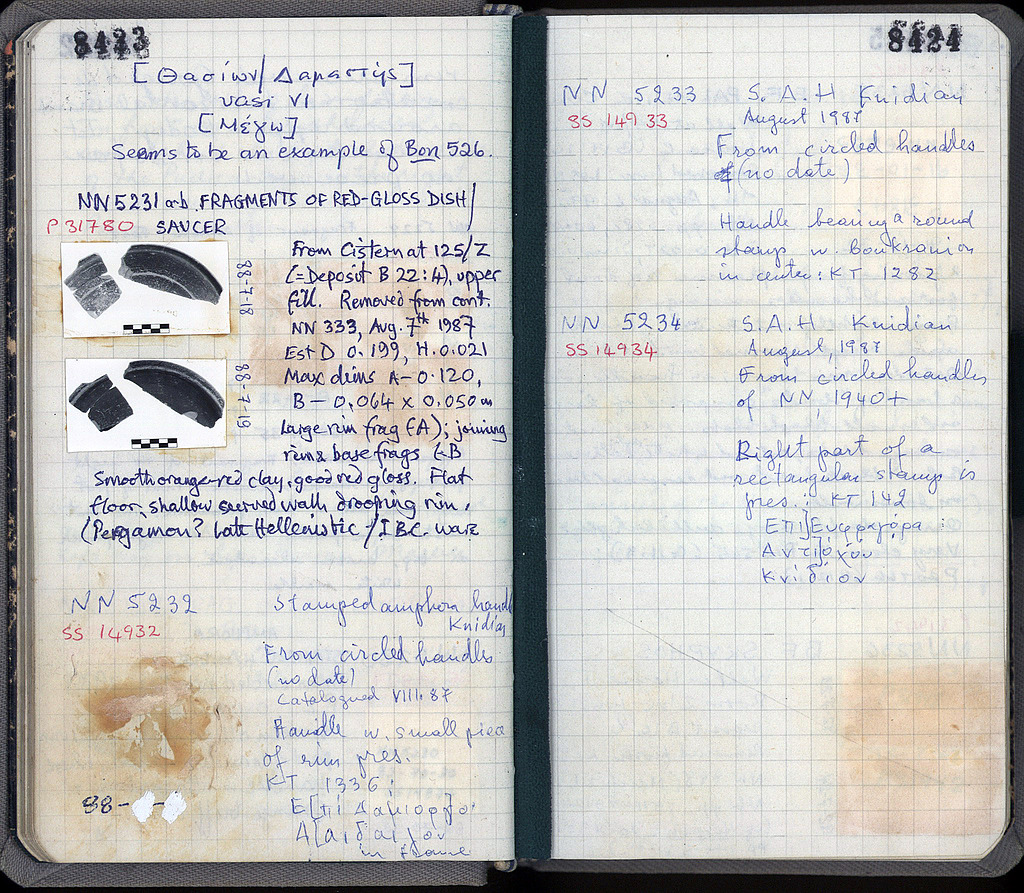 8423
[Θασίων/ Δαμαστής]
vasi VI
[Μέγω]
Seems to be an example of Bon 526.
NN 5231 a-b FRAGMENTS OF RED-GLOSS DISH/
P 31780 SAUCER
From Cistern at 125/Z
(=Deposit B 22:4), upper
fill. Removed from cont.
NN 333, Aug. 7th 1987
Est D 0.199, H. 0.021
Max dims A- 0.120,
B- 0.064 x 0.050 m
Large rim frag (A); joining
rim & base frags (-B
88-7-18
88-7-19
Smooth orange-red clay, good red gloss. Flat
floor, shallow curved wall, drooping rim.
(Pergamon? Late Hellenistic / I B.C. ware
NN 5232 Stamped amphora handle
SS 14932 Knidian
From circled handles
(no date)
Catalogued VIII.87
Handle w. small piece
of rim pres.
KT 1336:
Ε[πὶ Δαμιοργο
in frame
88-
8424
NN 5233 S.A.H Knidian
SS 14933 August 1987
From circled handles
(no date)
Handle bearing a round
stamp w. Boukranion
in center: KT 1282
NN 5234 S.A.H Knidian
SS 14934 August, 1987
From circled handles
of NN, 1940+
Right part of a
rectangular stamp is
pres.: KT 142
Επι]Ευφραγόρα
Αντι]όχου
Κνιδιον